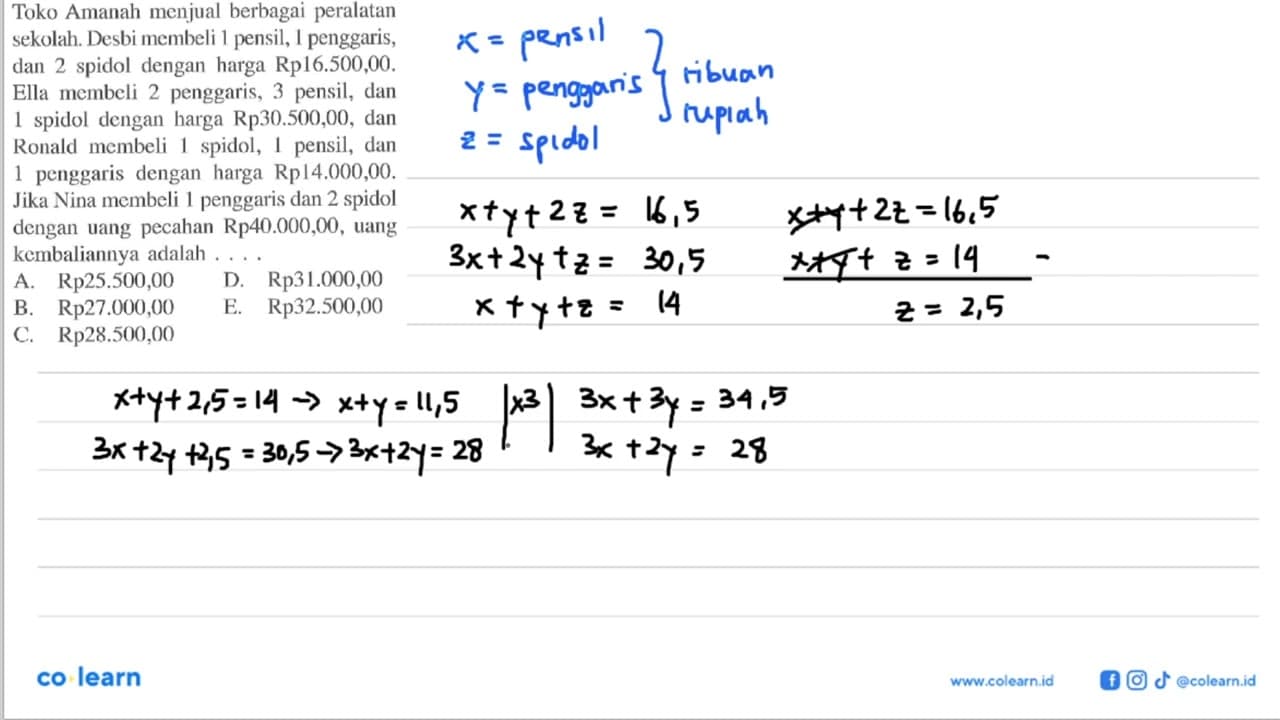 Toko Amanah menjual berbagai peralatan
sekolah. Desbi membeli 1 pensil, 1 penggaris,
dan 2 spidol dengan harga Rp16.500,00.
Ella membeli 2 penggaris, 3 pensil, dan
1 spidol dengan harga Rp30.500,00, dan
Ronald membeli 1 spidol, 1 pensil, dan
1 penggaris dengan harga Rp14.000,00.
Jika Nina membeli 1 penggaris dan 2 spidol
dengan uang pecahan Rp40.000,00, uang
kembaliannya adalah . . . .
A. Rp25.500,00 D. Rp31.000,00
B. Rp27.000,00 E. Rp32.500,00
C. Rp28.500,00
x = pensil
y = penggaris
z = spidol
ribuan
rupiah
x+y+2z = 16,5
3x+2y+z = 30,5
x+y+z = 14
x+y+2z = 16,5
x+y+z = 14 -
z = 2,5
x+y+2,5 = 14 → x+y = 11,5 |x3| 3x+3y = 34,5
3x+2y+2,5 = 30,5 → 3x+2y = 28 3x+2y = 28
co learn
www.colearn.id
@colearn.id